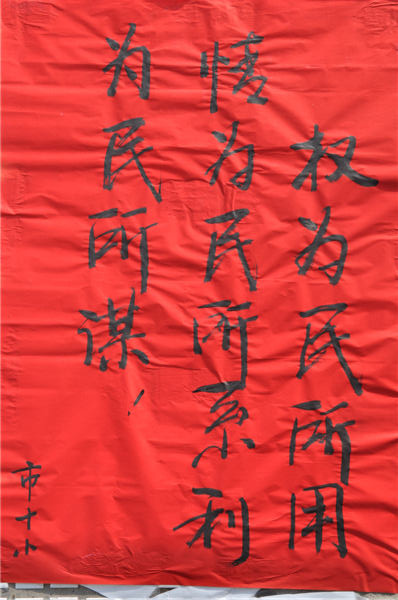 权为民所用
情为民所系利
为民所谋
市十小